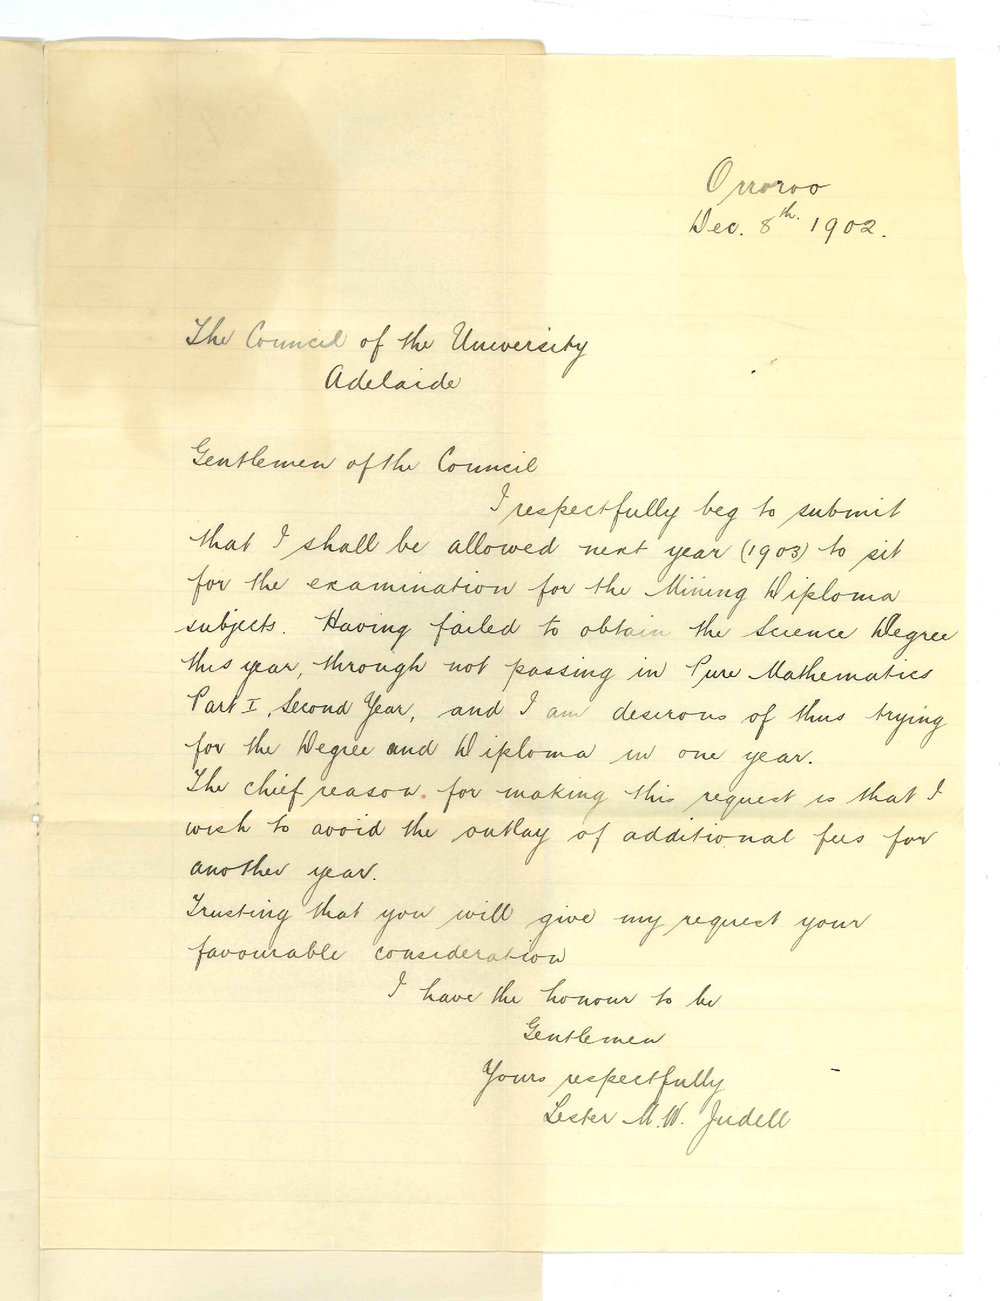 Orroroo
Dec. 8th. 1902.
The Council of the University
Adelaide
Gentlemen of the Council
I respectfully beg to submit
that I shall be allowed next year (1903) to sit
for the examination for the Mining Diploma
subjects. Having failed to obtain the Science Degree
this year, through not passing in Pure Mathematics
Part I, Second Year, and I am desirous of thus trying
for the Degree and Diploma in one year.
The chief reason for making this request is that I
wish to avoid the outlay of additional fees for
another year.
Trusting that you will give my request your
favourable consideration
I have the honour to be
Gentlemen
Yours respectfully
Lester M. W. Judell